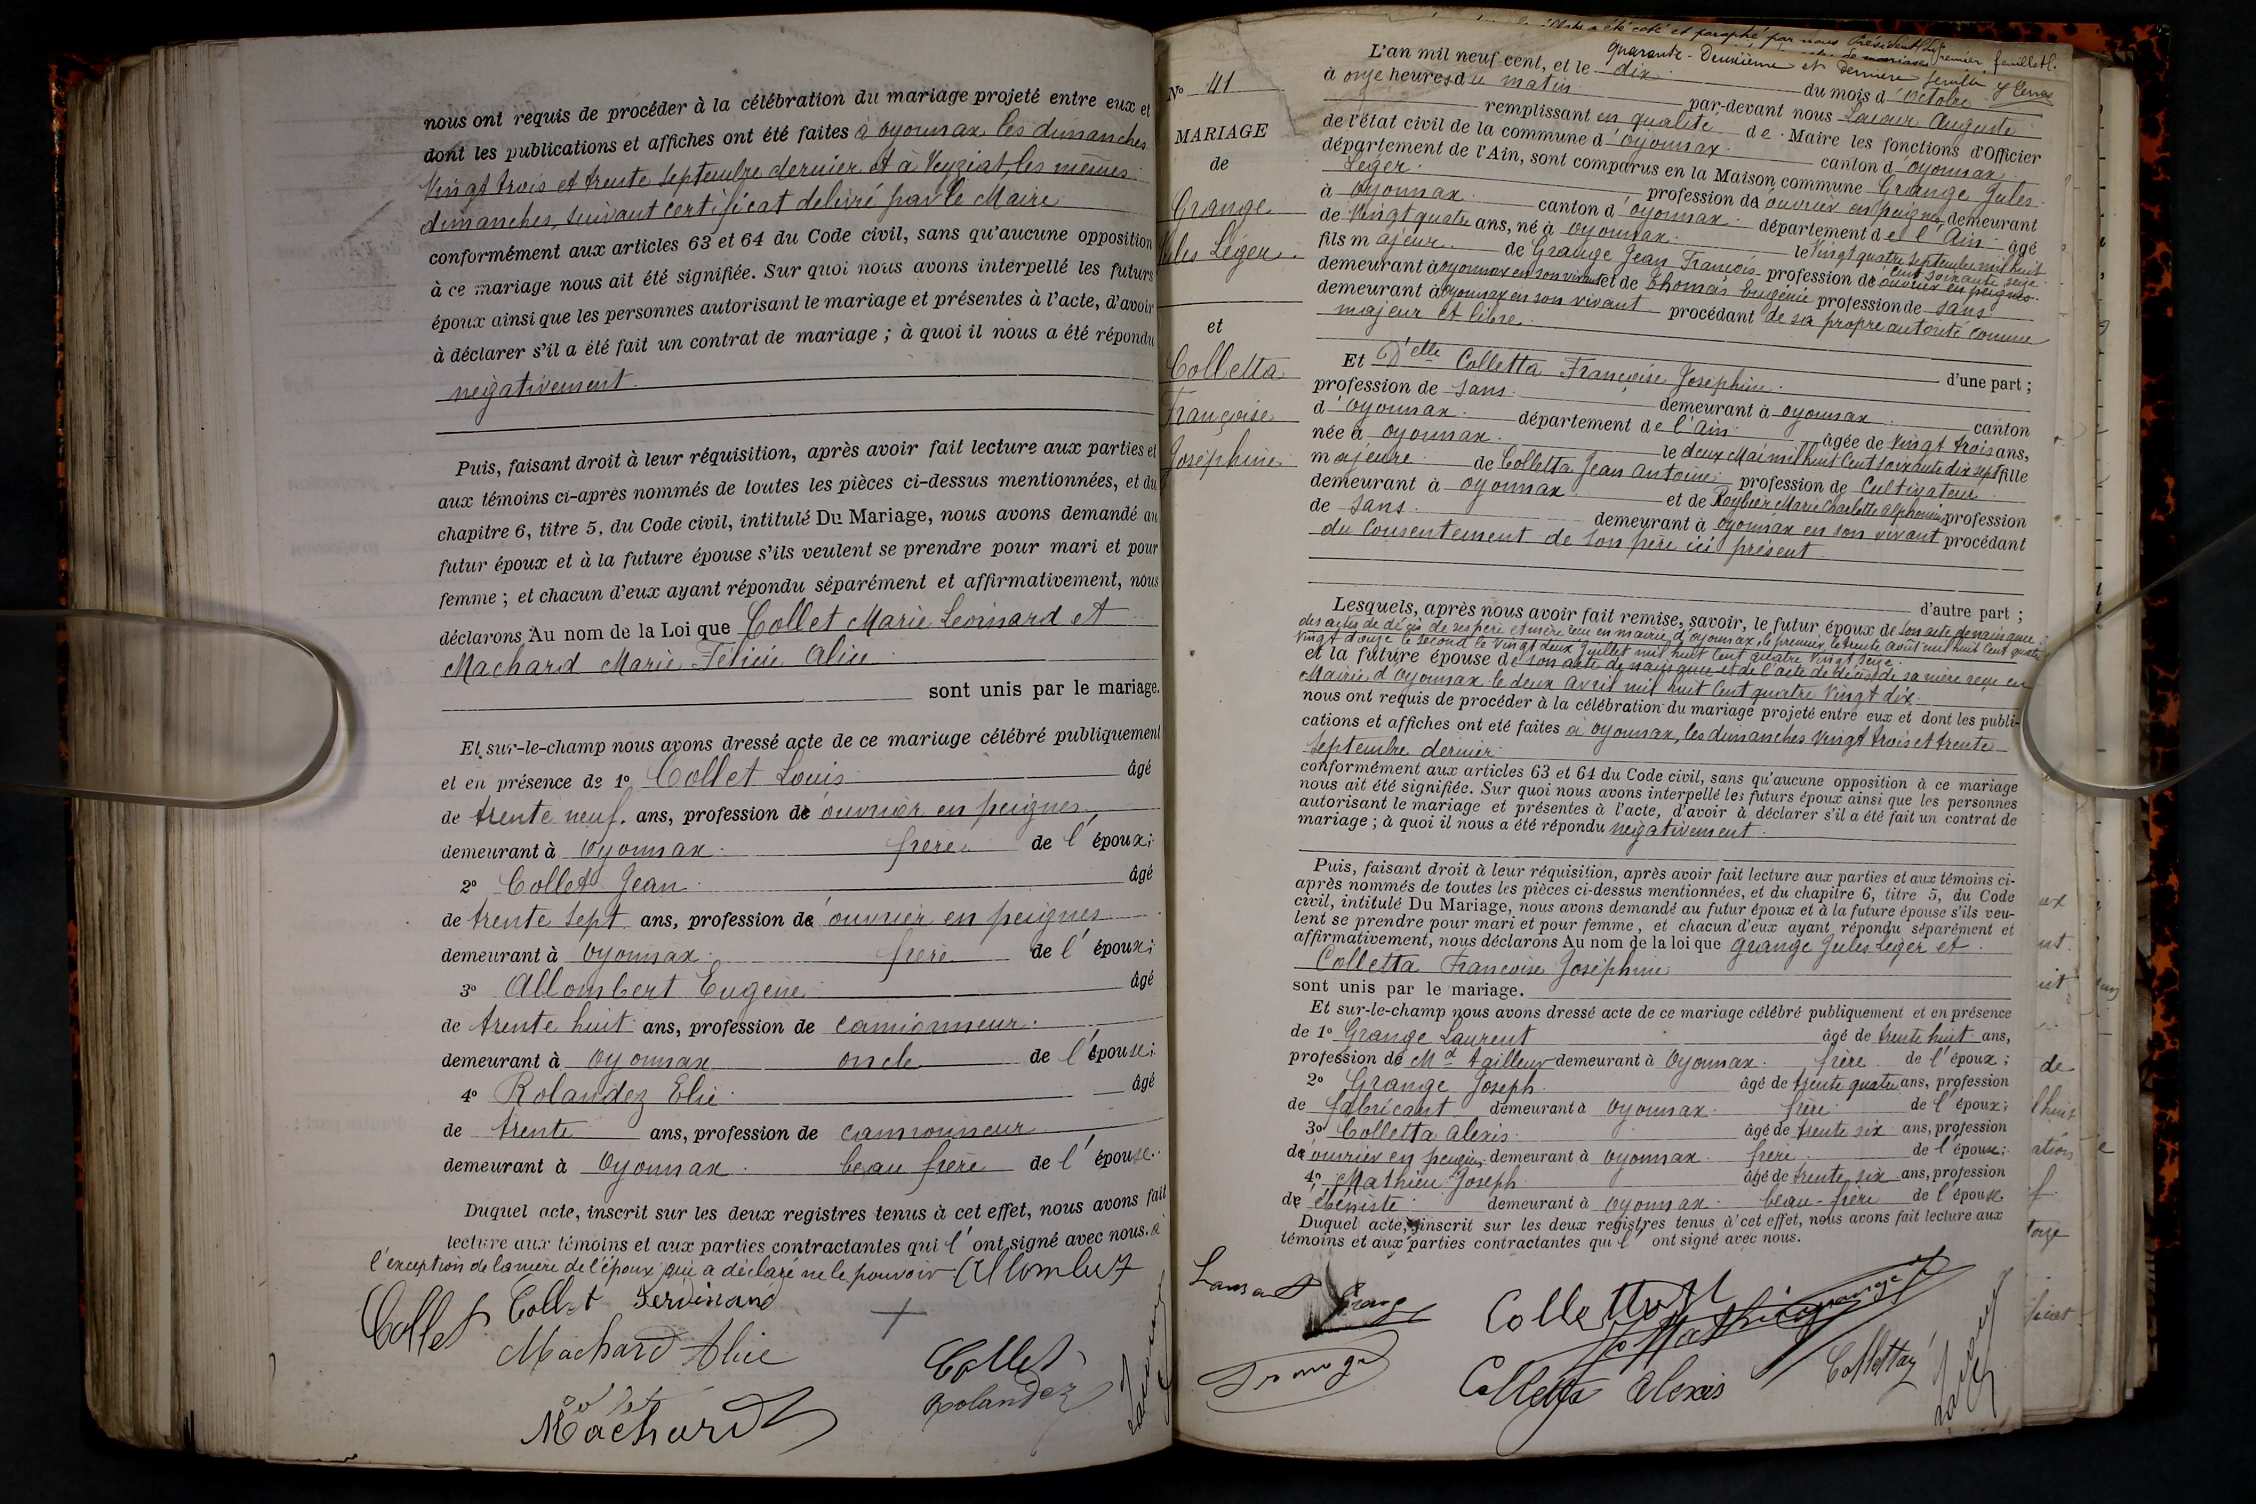 nous ont requis de procéder à la célébration du mariage projeté entre eux et
dont les publications et affiches ont été faites à Oyonnax, les dimanches
Vingt trois et trente Septembre dernier et à Veyziat, les mêmes
dimanches, suivant certificat delivré par le Maire
conformément aux articles 63 et 64 du Code civil, sans qu'aucune opposition
à ce mariage nous ait été signifiée. Sur quoi nous avons interpellé les futurs
époux ainsi que les personnes autorisant le mariage et présentes à l'acte, d'avoir
à déclarer s'il a été fait un contrat de mariage ; à quoi il nous a été répondu
négativement.
Puis, faisant droit à leur réquisition, après avoir fait lecture aux parties et
aux témoins ci-après nommés de toutes les pièces ci-dessus mentionnées, et du
chapitre 6, titre 5, du Code civil, intitulé Du Mariage, nous avons demandé au
futur époux et à la future épouse s'ils veulent se prendre pour mari et pour
femme ; et chacun d'eux ayant répondu séparément et affirmativement, nous
déclarons Au nom de la Loi que Collet Marie Léonard et
Machard Marie Félicie Alice
sont unis par le mariage.
Et sur-le-champ nous avons dressé acte de ce mariage célébré publiquement
et en présence de 1º Collet Louis âgé
de trente neuf. ans, profession de ouvrier en peignes
demeurant à Oyonnax. frère de l'époux;
2º Collet Jean âgé
de trente sept ans, profession de ouvrier en peignes
demeurant à Oyonnax frère de l'époux;
3º Allombert Eugène âgé
de trente huit ans, profession de camionneur.
demeurant à Oyonnax oncle de l'épouse;
4º Rolandez Elie âgé
de trente ans, profession de camionneur
demeurant à Oyonnax. beau frère de l'épouse.
Duquel acte, inscrit sur les deux registres tenus à cet effet, nous avons fait
lecture aux témoins et aux parties contractantes qui l'ont signé avec nous. à
l'exception de la mère de l'époux qui a déclaré ne le pouvoir Allombert
Collet Collet Ferdinand
Machard Alice
Collet
Rolandez
Machard
Nº 41
MARIAGE
de
Grange
Jules Léger.
et
Colletta
Françoise
Joséphine
Quarante-Deuxième et dernier feuillet
L'an mil neuf cent, et le dix du mois d'Octobre
à onze heures du matin par-devant nous Auguste
remplissant en qualité de Maire les fonctions d'Officier
de l'état civil de la commune d'Oyonnax. canton d'Oyonnax
département de l'Ain, sont comparus en la Maison commune Grange Jules
Léger. profession de ouvrier en peignes, demeurant
à Oyonnax canton d'Oyonnax. département de l'Ain âgé
de Vingt quatre ans, né à Oyonnax. le Vingt quatre Septembre mil huit
cent soixante seize
fils majeur de Grange Jean François profession de ouvrier en peignes.
demeurant à Oyonnax en son vivant et de Thomas Eugénie profession de sans
demeurant à Oyonnax en son vivant procédant de sa propre autorité comme
majeur et libre.
d'une part ;
Et Delle Colletta Françoise Joséphine.
profession de sans. demeurant à Oyonnax canton
d'Oyonnax. département de l'Ain âgée de Vingt trois ans,
née à Oyonnax. le deux Mai mil huit Cent soixante dix sept fille
majeure de Colletta Jean Antoine profession de Cultivateur
demeurant à Oyonnax et de Roybier Marie Charlotte Alphonsine profession
de sans. demeurant à Oyonnax en son vivant procédant
du Consentement de son père ici présent
d'autre part ;
Lesquels, après nous avoir fait remise, savoir, le futur époux de son acte de naissance
des actes de décès de ses père et mère reçu en mairie d'Oyonnax, le premier le trente Août mil huit Cent quatre
Vingt douze le second le Vingt deux Juillet mil huit Cent quatre Vingt seize.
et la future épouse de son acte de naissance et de l'acte de décès de sa mère reçu en
Mairie d'Oyonnax le deux Avril mil huit Cent quatre Vingt dix.
nous ont requis de procéder à la célébration du mariage projeté entre eux et dont les publi-
cations et affiches ont été faites à Oyonnax, les dimanches Vingt trois et trente
Septembre dernier.
conformément aux articles 63 et 64 du Code civil, sans qu'aucune opposition à ce mariage
nous ait été signifiée. Sur quoi nous avons interpellé les futurs époux ainsi que les personnes
autorisant le mariage et présentes à l'acte, d'avoir à déclarer s'il a été fait un contrat de
mariage ; à quoi il nous a été répondu négativement.
Puis, faisant droit à leur réquisition, après avoir fait lecture aux parties et aux témoins ci-
après nommés de toutes les pièces ci-dessus mentionnées, et du chapitre 6, titre 5, du Code
civil, intitulé Du Mariage, nous avons demandé au futur époux et à la future épouse s'ils veu-
lent se prendre pour mari et pour femme, et chacun d'eux ayant répondu séparément et
affirmativement, nous déclarons Au nom de la loi que Grange Jules Léger et
Colletta Françoise Joséphine
sont unis par le mariage.
Et sur-le-champ nous avons dressé acte de ce mariage célébré publiquement et en présence
de 1º Grange Laurent âgé de trente huit ans,
profession de Md tailleur demeurant à Oyonnax. frère de l'époux ;
2º Grange Joseph. âgé de trente quatre ans, profession
de fabricant demeurant à Oyonnax. frère de l'époux ;
3º Colletta Alexis. âgé de trente six ans, profession
de ouvrier en peignes, demeurant à Oyonnax. frère. de l'épouse;
4º Mathieu Joseph âgé de trente six ans, profession
de ébéniste demeurant à Oyonnax. beau-frère de l'épouse.
Duquel acte, inscrit sur les deux registres tenus à cet effet, nous avons fait lecture aux
témoins et aux parties contractantes qui l'ont signé avec nous.
Grange
Colletta
Mathieu
Grange
Colletta Alexis
Colletta